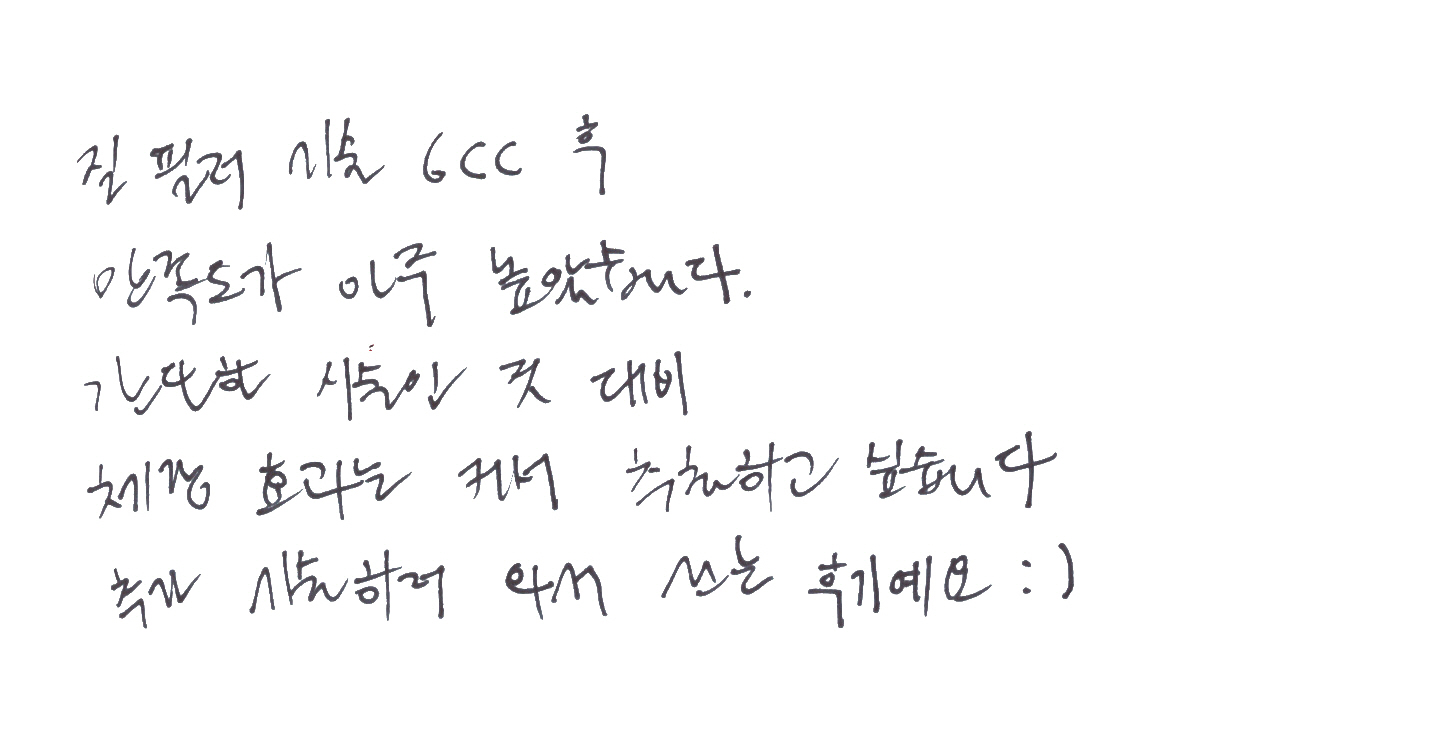 질 필러 시술 6CC 후
만족도가 아주 높았습니다.
간단한 시술인 것 대비
체감 효과는 커서 추천하고 싶습니다
추가 시술하러 와서 쓰는 후기예요 :)